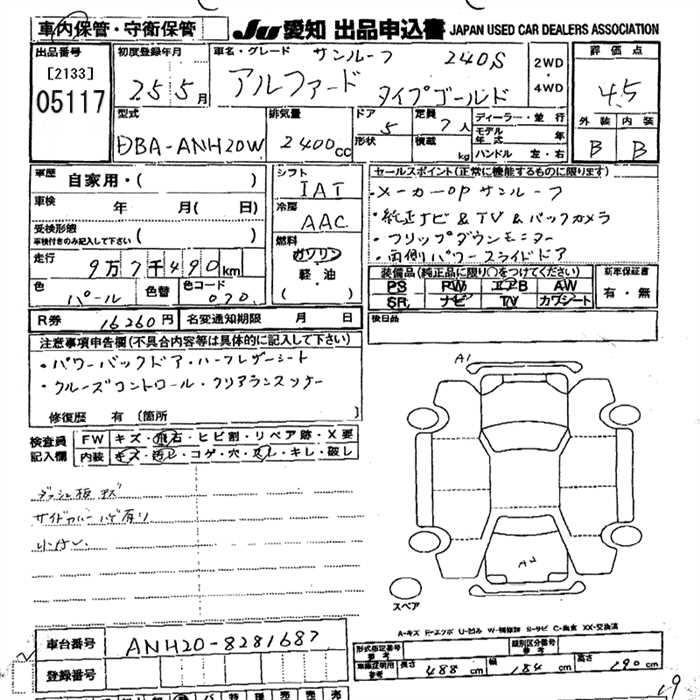 車内保管・守衛保管 JU 愛知 出品申込書 JAPAN USED CAR DEALERS ASSOCIATION
出品番号 [2133] 05117
初度登録年月 25 5月
車名・グレード サンルーフ 240S
アルファード タイプゴールド
2WD ・ 4WD
評価点 4.5
外装 内装
B B
型式 DBA-ANH20W
排気量 2400cc
ドア 5 形状
定員 7人 積載 kg
ディーラー・並行
モデル年式 年
ハンドル 左・右
車歴 自家用・( )
車検 年 月( 日)
受検形態 車検付きのみ記入して下さい ( )
走行 9万7千490km
色 パール 色替 色コード 070
シフト IAT
冷房 AAC
燃料 ガソリン
軽・油
( )
セールスポイント(正常に機能するものに限ります)
・メーカーOP サンルーフ
・純正ナビ&TV&バックカメラ
・フリップダウンモニター
・両側パワースライドドア
装備品(純正品に限り○をつけてください)
PS PW エアB AW
SR ナビ TV カワシート
新車保証書 有・無
R券 16260円 名変通知期限 月 日
後日品
注意事項申告欄(不具合内容等は具体的に記入して下さい)
・パワーバックドア・ハーフレザーシート
・クルーズコントロール・クリアランスソナー
修復歴 有 〔箇所
検査員記入欄
FW キズ・飛石・ヒビ割・リペア跡・X要
内装 キズ・汚レ・コゲ・穴・スレ・キレ・破レ
A1
スペア
A-キズ E-エクボ U-凹み W-補修跡 S-サビ C-腐食 XX-交換済
車台番号 ANH20-8281687
登録番号
形式指定番号 参考
類別区分番号 参考
車庫証明用 参考 長さ 488 cm 幅 184 cm 高さ 190 cm